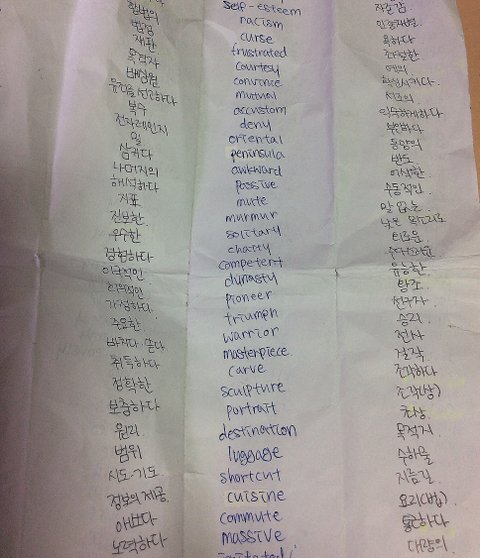 합법의
법정
재판
목격자
배심원
유죄를 선고하다
복수
전자레인지
밀
삼키다
나머지의
해석하다
지표
진보한
우수한
경험하다
이국적인
주요한
바치다
취득하다
정확한
보증하다
원리
범위
시도·기도
정보의 제공
노력하다
self-esteem 자존감
racism 인종차별
curse 욕하다
frustrated 좌절한
courtesy 예의
convince 확신시키다
mutual 서로의
accustom 익숙하게하다
deny 부인하다
oriental 동양의
peninsula 반도
awkward 어색한
passive 수동적인
mute 말 없는
murmur 낮은 목소리로
solitary 외로운
chatty 수다스러운
competent 유능한
dynasty 왕조
pioneer 선구자
triumph 승리
warrior 전사
masterpiece 걸작
carve 조각하다
sculpture 조각(상)
portrait 초상
destination 목적지
luggage 수하물
shortcut 지름길
cuisine 요리(법)
commute 통근하다
massive 대량의